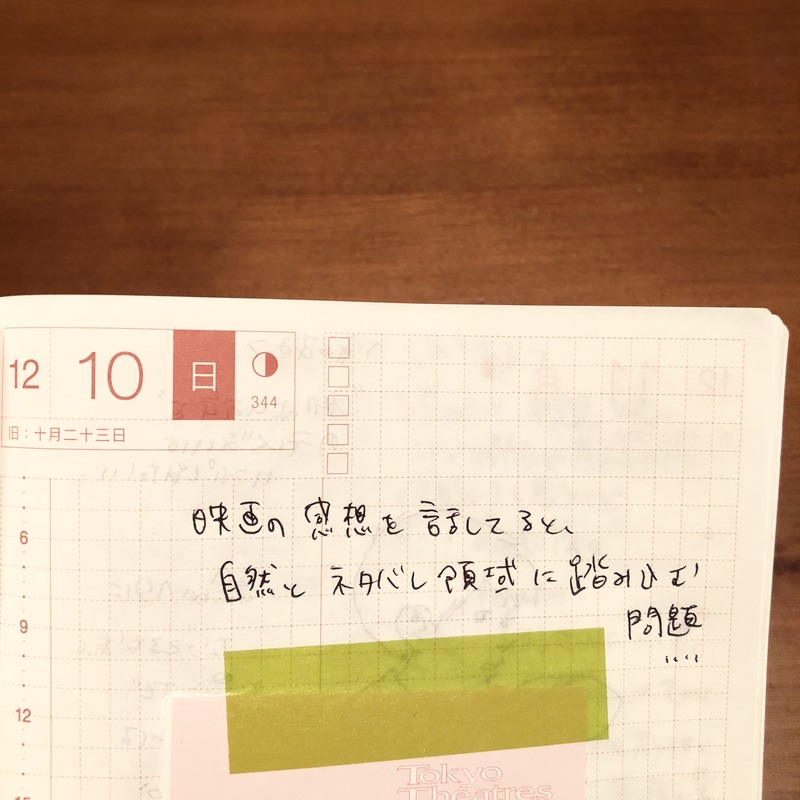 12 10 日
344
旧：十月二十三日
映画の感想を話してると、
自然とネタバレ領域に踏み込む
問題
....
6
9
12
15
Tokyo
Théatres